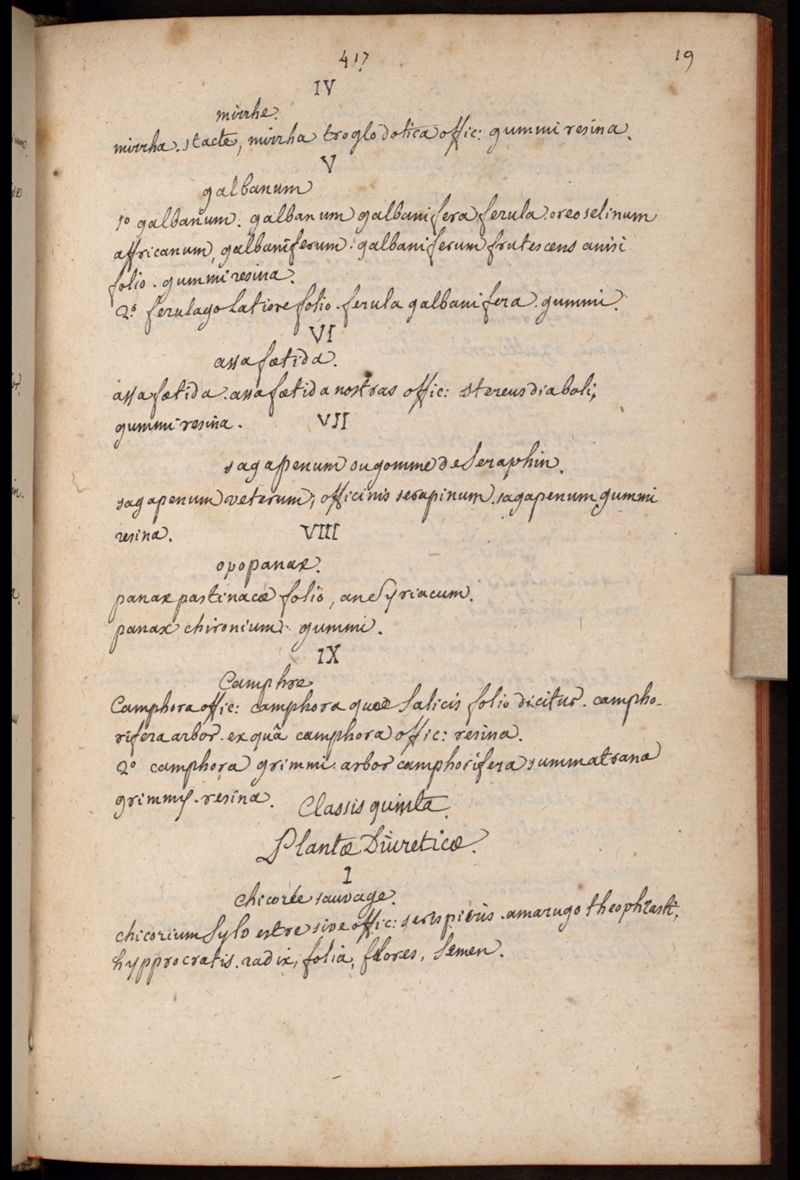 417
19
IV
mirrhe.
mirrha. stacte, mirrha troglodotica offic: gummi resina.
V
galbanum
1º galbanum. galbanum galbanifera ferula. oreoselinum
affricanum, galbaniferum. galbaniferum frutescens anisi
folio. gummi resina.
2º ferulago latiore folio. ferula galbanifera. gummi.
VI
assa fœtida.
assa fœtida. assa fœtida nostras offic: stereus diaboli,
gummi resina.
VII
sagapenum ou gomme de Seraphin.
sagapenum veterum, officinis serapinum. sagapenum gummi
resina.
VIII
opopanax.
panax pastinacœ folio, an e Syriacum.
panax chironium. gummi.
IX
Camphre
Camphora offic: camphora quœ Salicis folio dicitur. campho-
rifera arbor. ex quâ camphora offic: resina.
2º camphora grimmi. arbor camphorifera summatrana
grimmÿ. resina.
Classis quinta.
Plantœ Diureticœ.
I
chicorée sauvage.
chicorium Sylvestre sive offic: seris picris. amarugo theophrasti,
hypprocratis. radix, folia, flores, Semen.